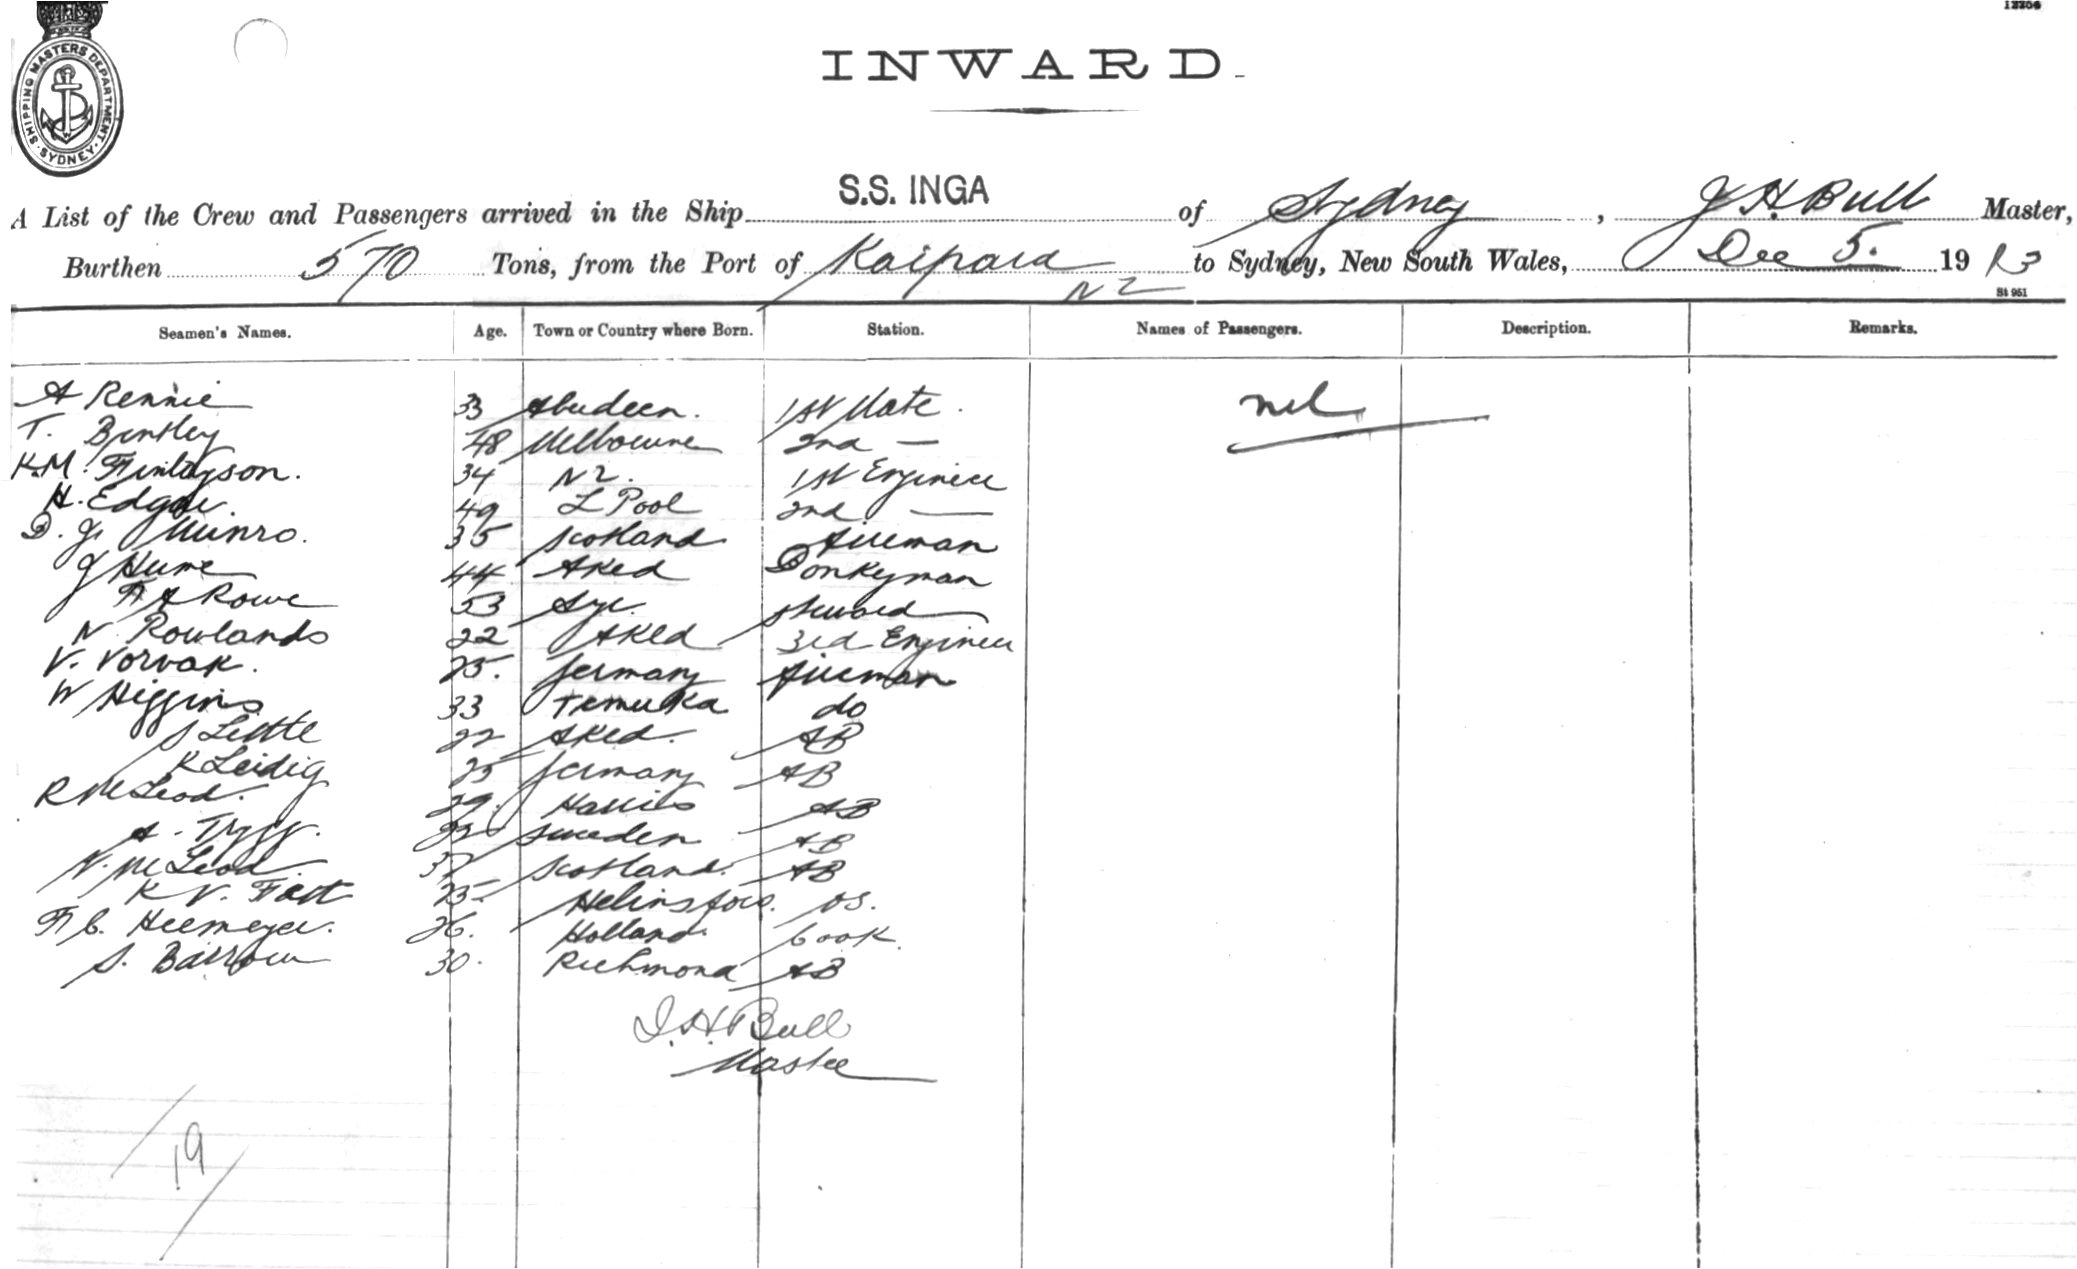 12206
SHIPPING MASTERS DEPARTMENT. SYDNEY.
INWARD.
A List of the Crew and Passengers arrived in the Ship S.S. INGA of Sydney, J H. Bull Master,
Burthen 570 Tons, from the Port of Kaipara NZ to Sydney, New South Wales, Dec 5. 19
St 951
Seamen's Names. Age. Town or Country where Born. Station. Names of Passengers. Description. Remarks.
A Rennie 33 Aberdeen. 1st Mate. nil
T. Bentley 48 Melbourne 2nd —
K.M. Finlayson. 34 NZ. 1st Engineer
H. Edgar. 49 L Pool 2nd —
D. J. Munro. 35 Scotland Fireman
J Hume 44 Akld Donkyman
F A Rowe 53 Syd. Steward
N Rowlands 22 Akld 3rd Engineer
V. Vorvak. 25. Germany Fireman
W Higgins 33 Temuka do
S Little 22 Akld. AB
K Leidig 25 Germany AB
R McLeod. 29. Harris AB
A. Trygg. 22 Sweden AB
N. McLeod. 37 Scotland. AB
K V. Fatt 25. Helinsfors. OS.
F C. Heemeyer. 26. Holland. Cook.
S. Barrow 30. Richmond AB
J. H. Bull
Master
19